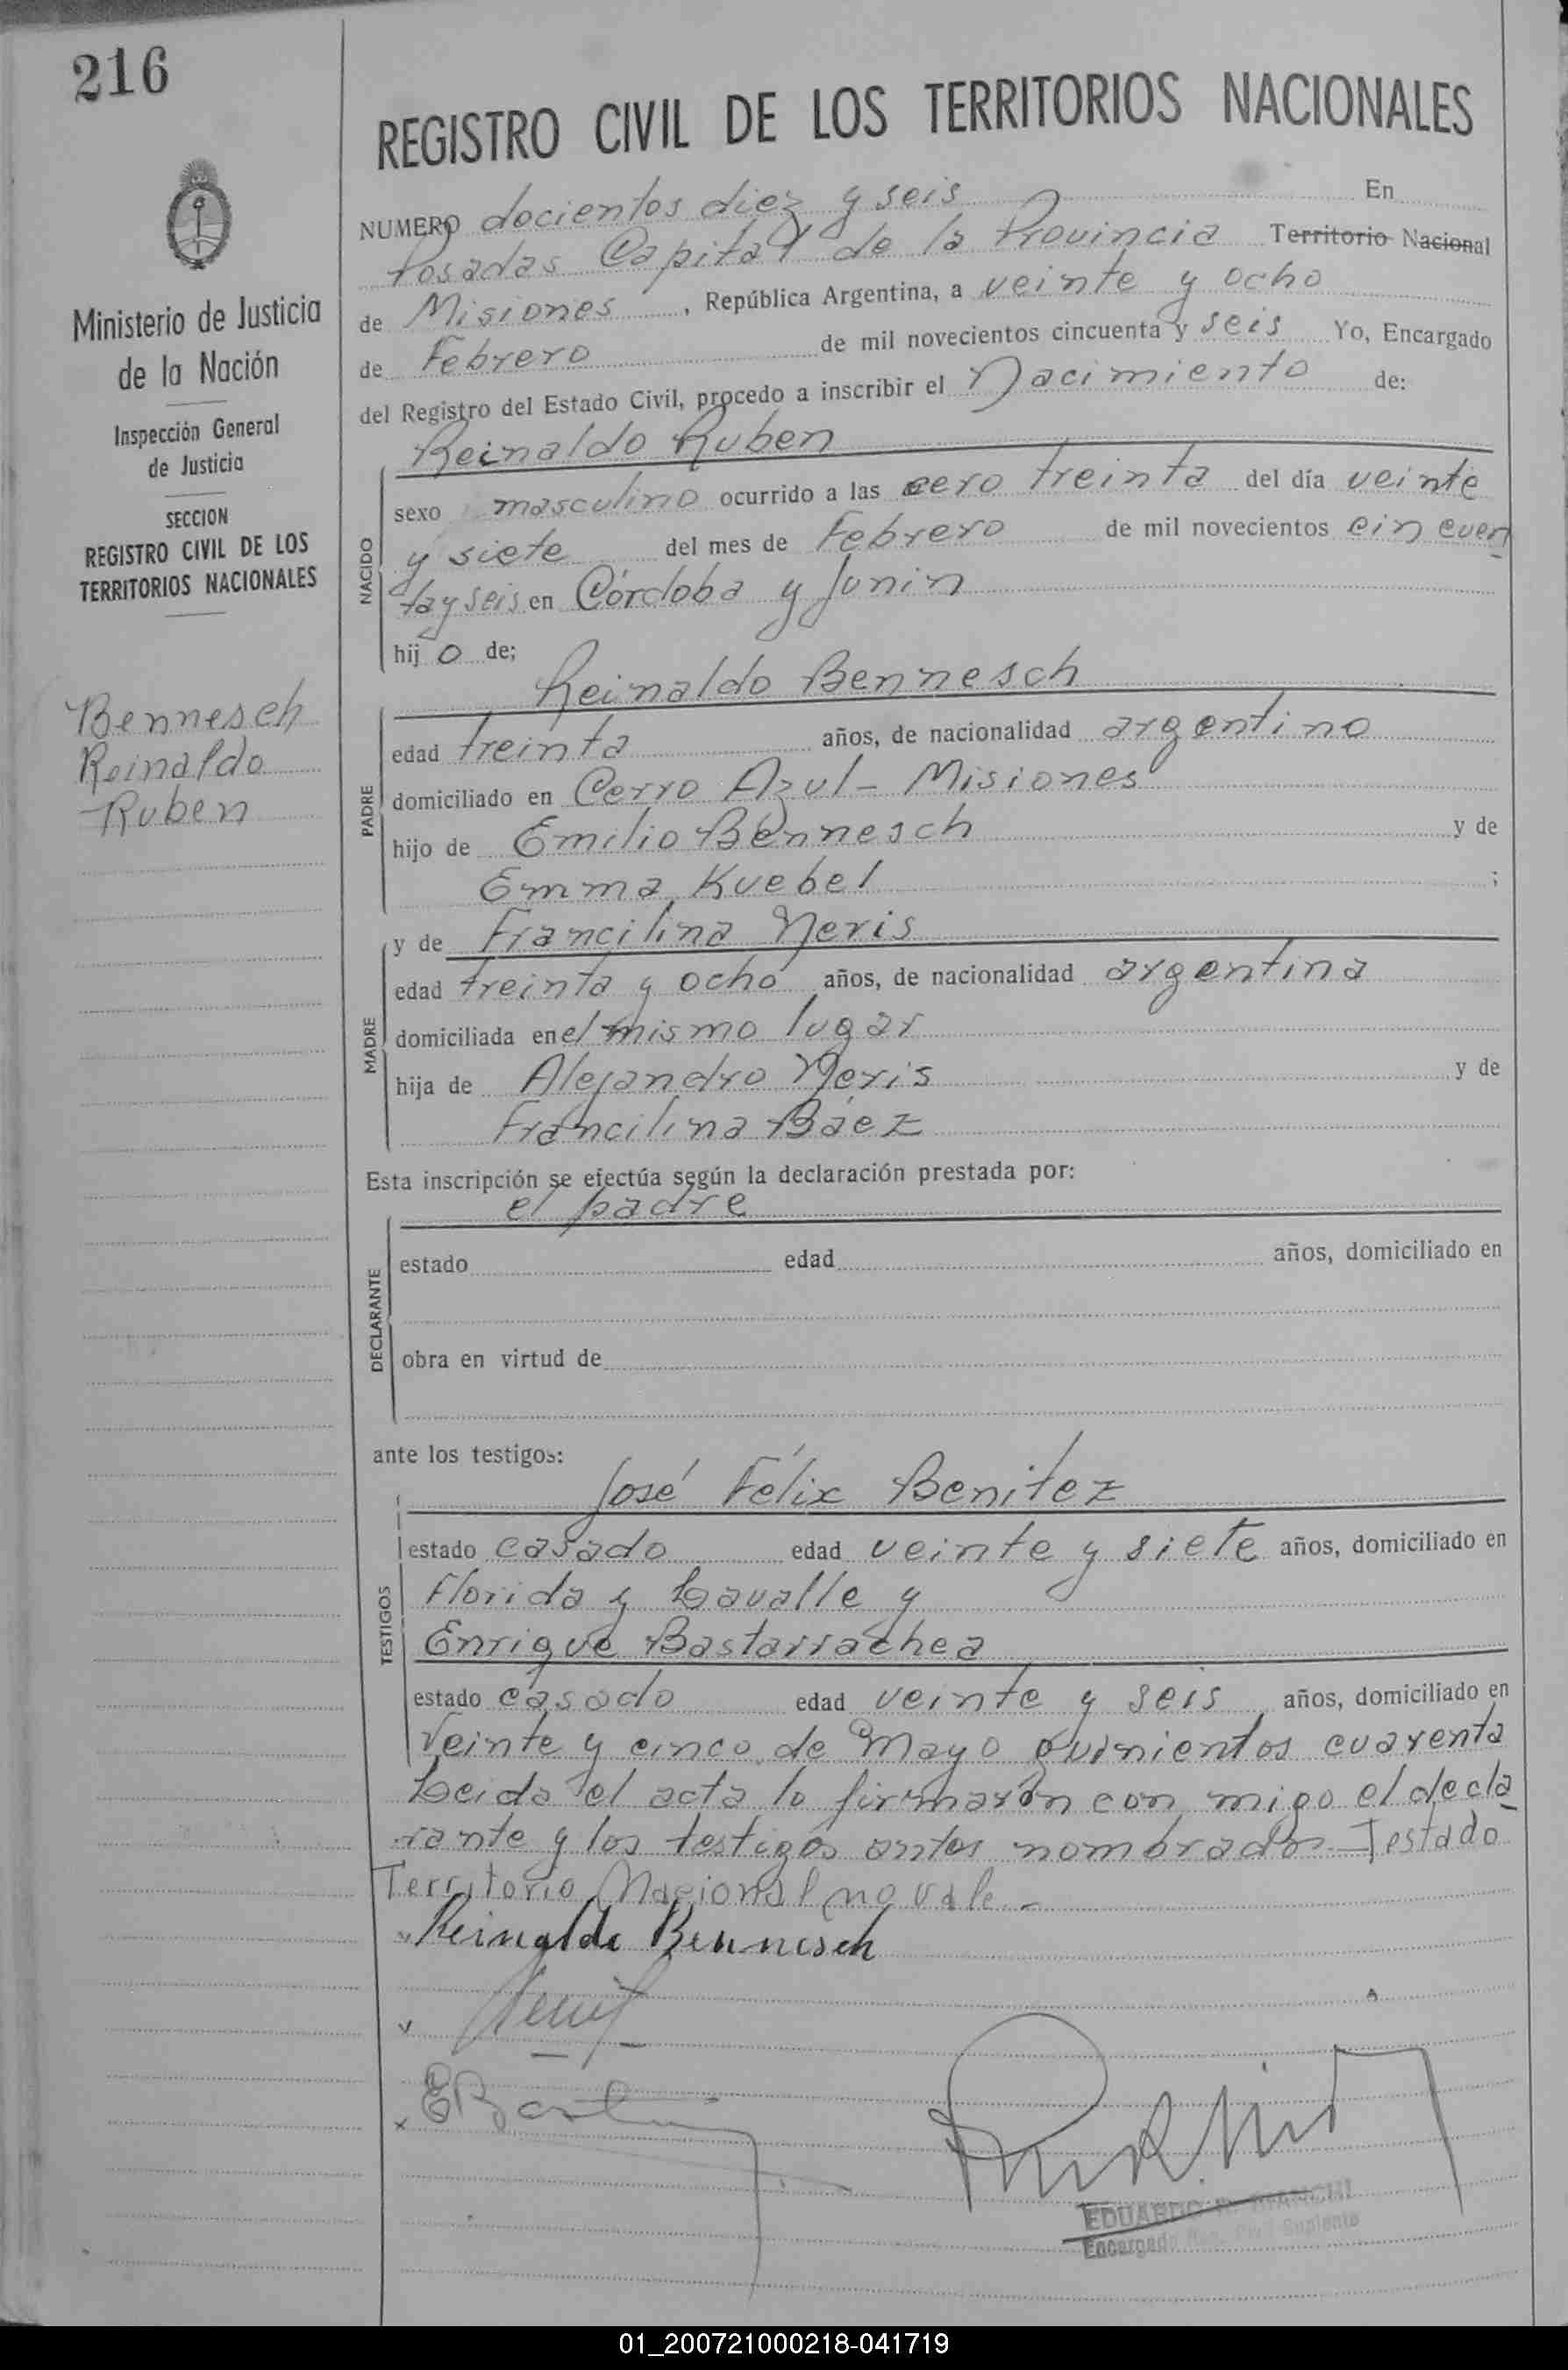 216
Ministerio de Justicia
de la Nación
Inspección General
de Justicia
SECCION
REGISTRO CIVIL DE LOS
TERRITORIOS NACIONALES
Bennesch
Reinaldo
Ruben
REGISTRO CIVIL DE LOS TERRITORIOS NACIONALES
NUMERO docientos diez y seis En
Posadas Capital de la Provincia Territorio Nacional
de Misiones, República Argentina, a veinte y ocho
de Febrero de mil novecientos cincuenta y seis Yo, Encargado
del Registro del Estado Civil, procedo a inscribir el Nacimiento de:
Reinaldo Ruben
NACIDO
sexo masculino ocurrido a las cero treinta del día veinte
y siete del mes de Febrero de mil novecientos cincuen
ta y seis en Córdoba y Junin
hijo de;
Reinaldo Bennesch
PADRE
edad treinta años, de nacionalidad argentino
domiciliado en Cerro Azul - Misiones
hijo de Emilio Bennesch y de
Emma Kuebel ;
MADRE
y de Francilina Neris
edad treinta y ocho años, de nacionalidad argentina
domiciliada en el mismo lugar
hija de Alejandro Neris y de
Francilina Báez
Esta inscripción se efectúa según la declaración prestada por:
el padre
DECLARANTE
estado edad años, domiciliado en
obra en virtud de
ante los testigos:
José Félix Benitez
TESTIGOS
estado casado edad veinte y siete años, domiciliado en
Florida y Lavalle y
Enrique Bastarrachea
estado casado edad veinte y seis años, domiciliado en
Veinte y cinco de Mayo quinientos cuarenta
Leida el acta lo firmarón con migo el decla
rante y los testigos antes nombrados.- Testado
Territorio Nacional no vale.-
Reinaldo Bennesch
EDUARDO R. BIANCHI
Encargado Reg. Civil Suplente
01_200721000218-041719